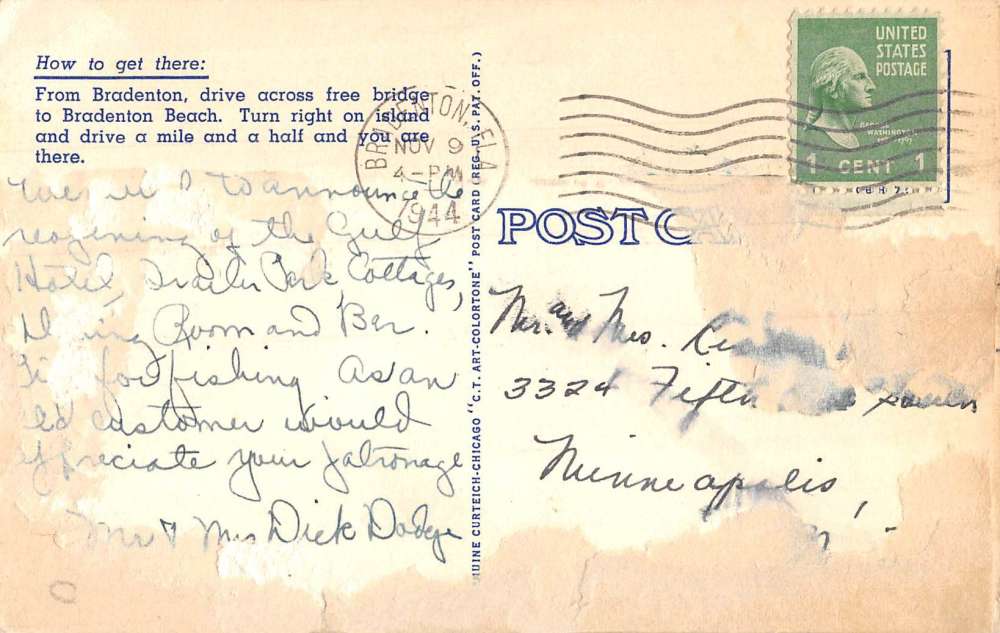 How to get there:
From Bradenton, drive across free bridge
to Bradenton Beach. Turn right on island
and drive a mile and a half and you are
there.
to announce the
reopening of the Gulf
Hotel, Trailer Park, Cottages,
Dining Room and Bar.
for fishing As an
old customer would
appreciate your patronage
Mr & Mrs Dick Dodge
UINE CURTEICH-CHICAGO "C.T. ART-COLORTONE" POST CARD (REG. U.S. PAT. OFF.)
BRADENTON, FLA.
NOV 9
4-PM
1944
UNITED
STATES
POSTAGE
GEORGE
WASHINGTON
1 CENT 1
POST CA
Mr. and Mrs.
3324 Fifth South
Minneapolis,